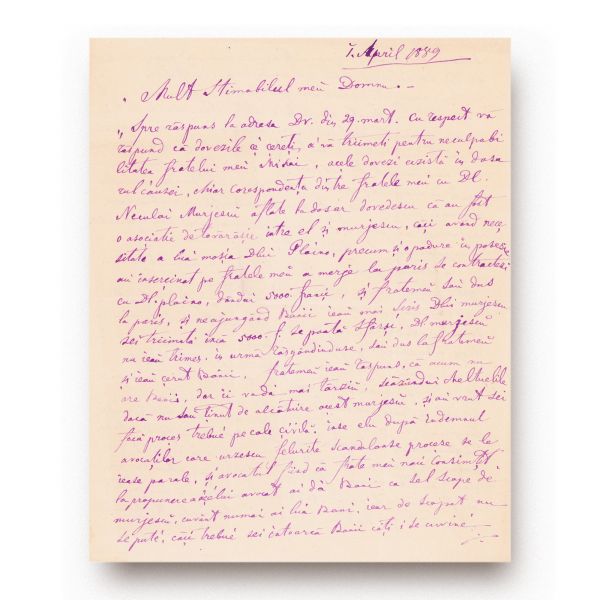 1. April 1889
Mult Stimabilul meu Domnu.-
Spre răspuns la adresa Dv. din 29. mart. Cu respect vă
răspund că dovezile ce cereți, a vă trimeti pentru neculpabi
litatea fratelui meu Mihai, acele dovezi ezistă in dosa
rul căusei, chiar corespondența dintre fratele meu cu Dl.
Neculai Murjescu aflate la dosar dovedescu că au fost
o asociatie de tovarăsie intre el și murjescu, căți avănd nece
sitate a lua moșia Dlui Plaino, precum și apadure in posesie
au insercinat pe fratele meu a merje la paris se contracteze
cu Dl. plaino, dăndui 5000. franți, și fratemeu sau dus
la paris, și neajungănd Banii ieau mai scris Dlui murjescu
sei trimită inca 5000 f. se poată sfărși, Dl. murjescu
nu ieau trimes, in urmă răsgăndinduse, sau dus la fratemeu
și ieau cerut Banii. fratemeu ieau răspuns, că acum nu
are Banii, dar ii va da mai tărziu, scăzindui cheltuelile
dacă nu sau ținut de alcătuire acest murjescu, și au vrut sei
facă proces trebue pe cale civilă, iase elu după indemnul
avocaților care urzescu felurite scandaloase procese se le
iease parale, și avocatul fiind că frate meu nau consimțit
la propunere acelui avocat ai dă Bani ca sel scape de
murjescu, cuvănt numai ai lua Bani, iar de scapat nu
se pute, căci trebue sei intoarcă Banii căți i se cuvine.